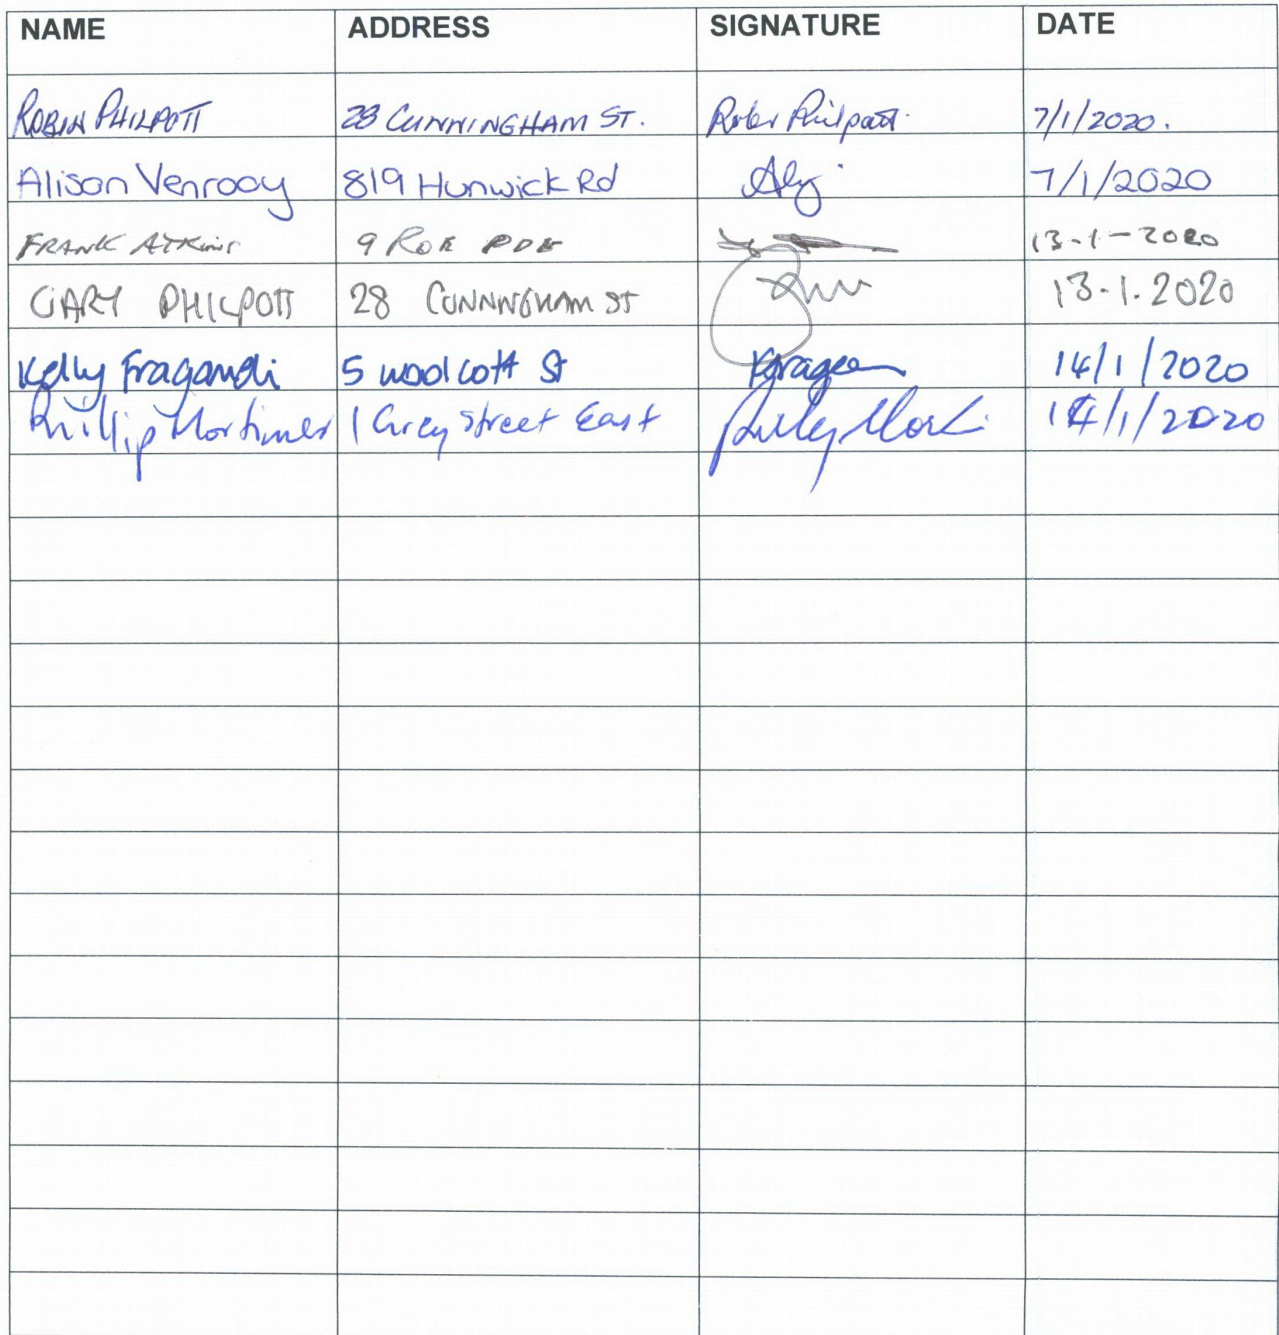 NAME ADDRESS SIGNATURE DATE
ROBIN PHILPOTT 28 CUNNINGHAM ST. Robin Philpott. 7/1/2020.
Alison Venrooy 819 Hunwick Rd 7/1/2020
FRANK ATKINS 9 ROE PDE 13-1-2020
GARY PHILPOTT 28 CUNNINGHAM ST 13.1.2020
Kelly Fragandi 5 woolcott St 14/1/2020
Phillip Mortimer 1 Grey Street East 14/1/2020